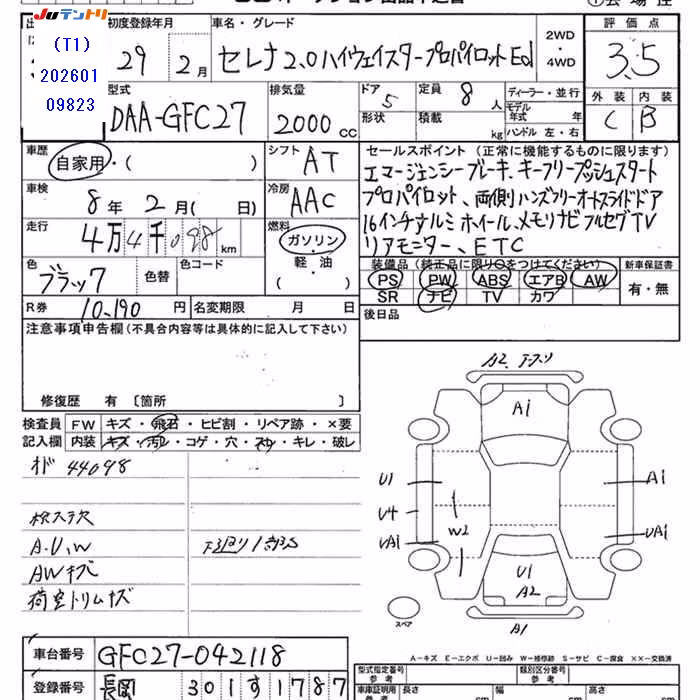 Juテントリ
(T1)
202601
09823
初度登録年月
車名・グレード
評価点
29年 2月
セレナ 2.0 ハイウェイスタープロパイロットEd
2WD・4WD
3.5
型式
排気量
ドア
定員
ディーラー・並行
外装 内装
DAA-GFC27
2000cc
5
8人
モデル年式 年
C B
形状
積載 kg
ハンドル 左・右
車歴
自家用・( )
シフト
AT
セールスポイント(正常に機能するものに限ります)
エマージェンシーブレーキ、キーフリープッシュスタート
車検
8年 2月( 日)
冷房
AAC
プロパイロット、両側ハンズフリーオートスライドドア
走行
4万4千098km
燃料
ガソリン・軽・油
16インチアルミホイール、メモリナビフルセグTV
リアモニター、ETC
色
ブラック
色替
色コード
( )
装備品(純正品に限り○をつけてください)
新車保証書
PS PW ABS エアB AW
有・無
SR ナビ TV カワ
R券
10,190円
名変期限 月 日
後日品
注意事項申告欄(不具合内容等は具体的に記入して下さい)
修復歴 有〔箇所
検査員記入欄
FW キズ・飛石・ヒビ割・リペア跡・×要
内装 キズ・汚レ・コゲ・穴・スレ・キレ・破レ
オド 44098
A.U.W
下廻り1部S
AWキズ
荷室トリムキズ
A2
A1
U1
U4
UA1
W2
A1
UA1
U1
A2
A1
スペア
A-キズ E-エクボ U-凹み W-補修跡 S-サビ C-腐食 ××-交換済
車台番号
GFC27-042118
型式指定番号 参考
類別区分番号 参考
登録番号
長岡 301 す 1787
車庫証明用 参考
長さ cm
幅 cm
高さ cm